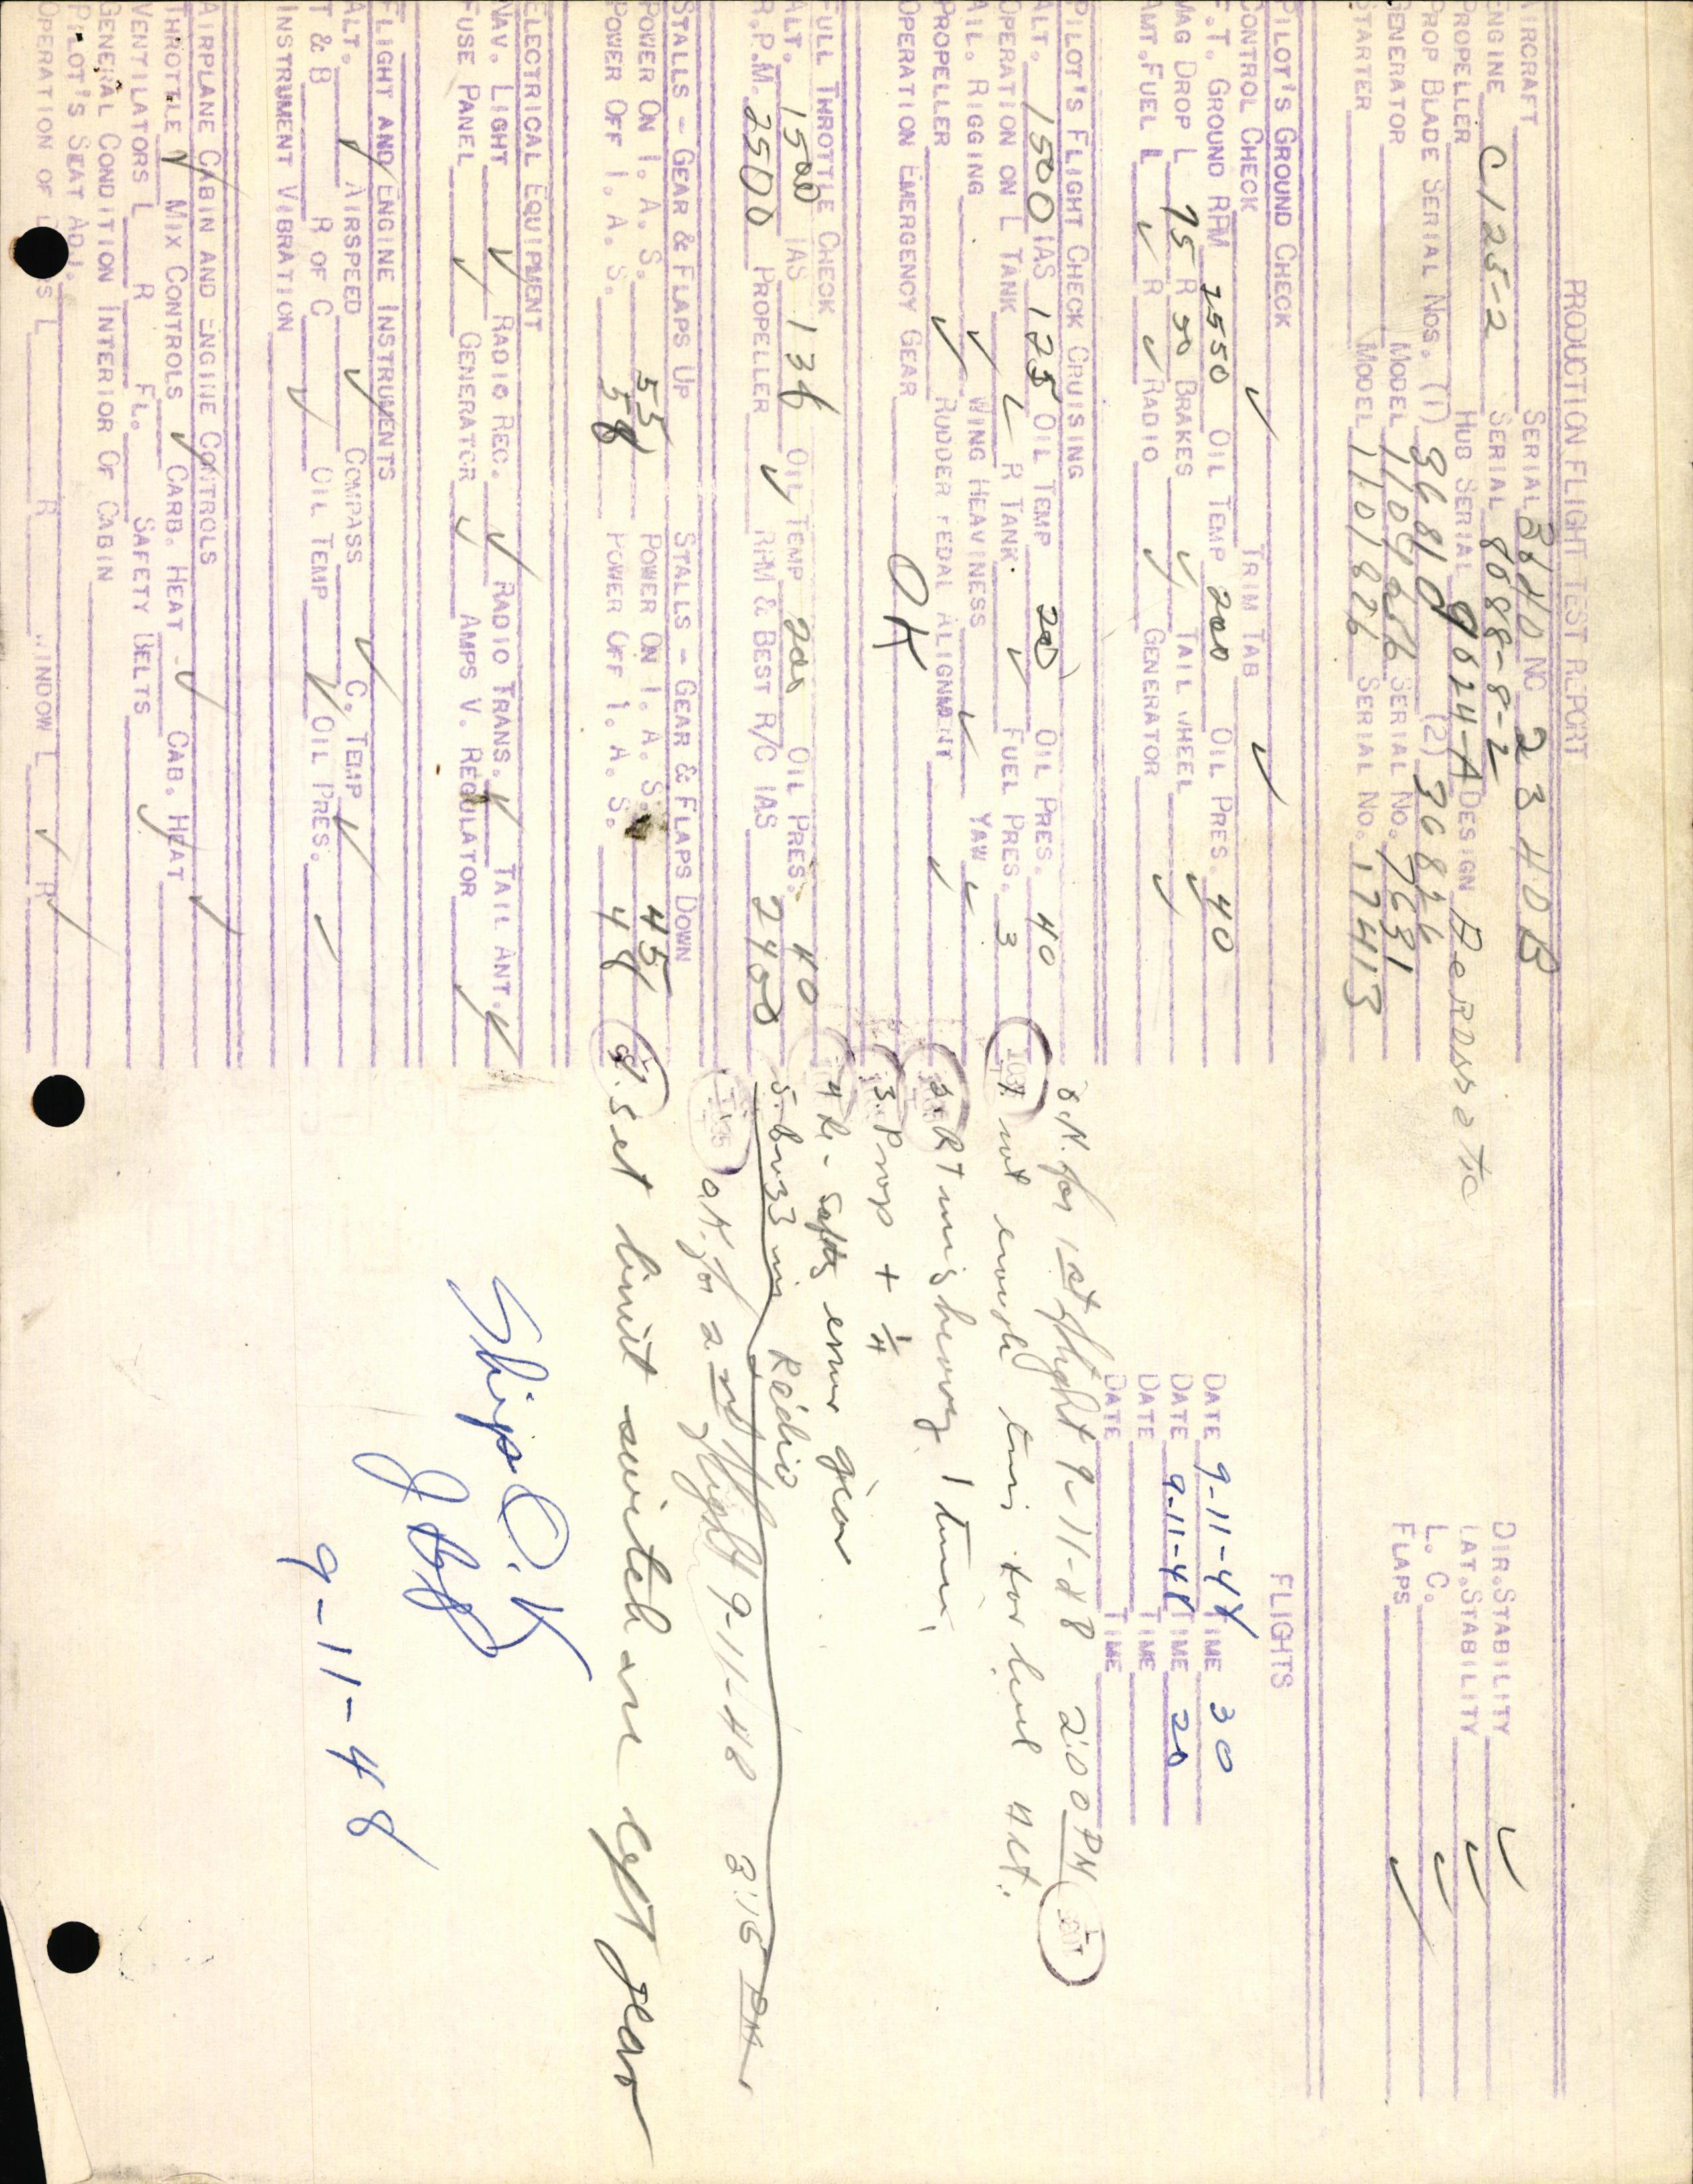 PRODUCTION FLIGHT TEST REPORT
AIRCRAFT SERIAL NC 2340B
ENGINE C125-2 SERIAL 8088-8-2
PROPELLER HUB SERIAL 9624-A DESIGN
PROP BLADE SERIAL NOS. (1) (2)
GENERATOR MODEL SERIAL NO. 7631
STARTER MODEL 1101826 SERIAL NO. 17413
DIR. STABILITY ✓
LAT. STABILITY ✓
L. C. ✓
FLAPS ✓
PILOT'S GROUND CHECK
CONTROL CHECK ✓ TRIM TAB ✓
F.T. GROUND RPM 2550 OIL TEMP 200 OIL PRES. 40
MAG DROP L 75 R 50 BRAKES ✓ TAIL WHEEL ✓
AMT. FUEL L ✓ R ✓ RADIO ✓ GENERATOR ✓
FLIGHTS
DATE 9-11-48 TIME 30
DATE 9-11-48 TIME 20
DATE TIME
DATE TIME
PILOT'S FLIGHT CHECK CRUISING
ALT. 1500 IAS 125 OIL TEMP 200 OIL PRES. 40
OPERATION ON L TANK ✓ R TANK. ✓ FUEL PRES. 3
AIL. RIGGING ✓ WING HEAVINESS ✓ YAW ✓
PROPELLER ✓ RUDDER PEDAL ALIGNMENT ✓
OPERATION EMERGENCY GEAR OK
FULL THROTTLE CHECK
ALT. 1500 IAS 136 OIL TEMP 200 OIL PRES. 40
R.P.M. 2500 PROPELLER ✓ RPM & BEST R/C IAS 2400
STALLS - GEAR & FLAPS UP STALLS - GEAR & FLAPS DOWN
POWER ON I. A. S. 55 POWER ON I. A. S. 45
POWER OFF I. A. S. 58 POWER OFF I. A. S. 48
ELECTRICAL EQUIPMENT
NAV. LIGHT ✓ RADIO REC. ✓ RADIO TRANS. ✓ TAIL ANT. ✓
FUSE PANEL ✓ GENERATOR ✓ AMPS V. REGULATOR ✓
FLIGHT AND ENGINE INSTRUMENTS
ALT. ✓ AIRSPEED ✓ COMPASS ✓ C. TEMP ✓
T & B R OF C OIL TEMP ✓ OIL PRES. ✓
INSTRUMENT VIBRATION ✓
AIRPLANE CABIN AND ENGINE CONTROLS
THROTTLE ✓ MIX CONTROLS ✓ CARB. HEAT ✓ CAB. HEAT ✓
VENTILATORS L R FL. SAFETY BELTS ✓
GENERAL CONDITION INTERIOR OF CABIN
PILOT'S SEAT ADJ.
OPERATION OF L R WINDOW L ✓ R ✓
O.K. for 1st flight 9-11-48 2:00 PM
1. not enough trim for level Alt.
2. RT wing heavy 1 turn.
3. Prop + 1/4
4. Re-safty emer gear
5. buzz in Radio
O.K. for 2nd flight 9-11-48 3:15 PM
set limit switch on left gear
Ship O.K.
9-11-48